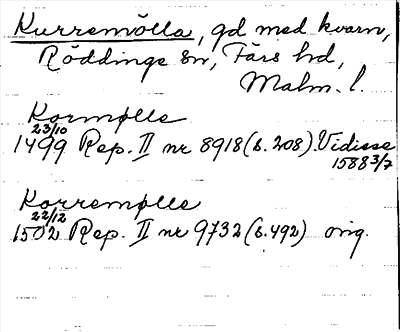 Kurremölla, gd med kvarn,
Röddinge sn, Färs hd,
Malm. l.
Kormølle
23/10
1499 Rep. II nr 8918 (s. 208). Vidisse
1588 3/7
Korremølle
22/12
1502 Rep. II nr 9732 (s. 492) orig.